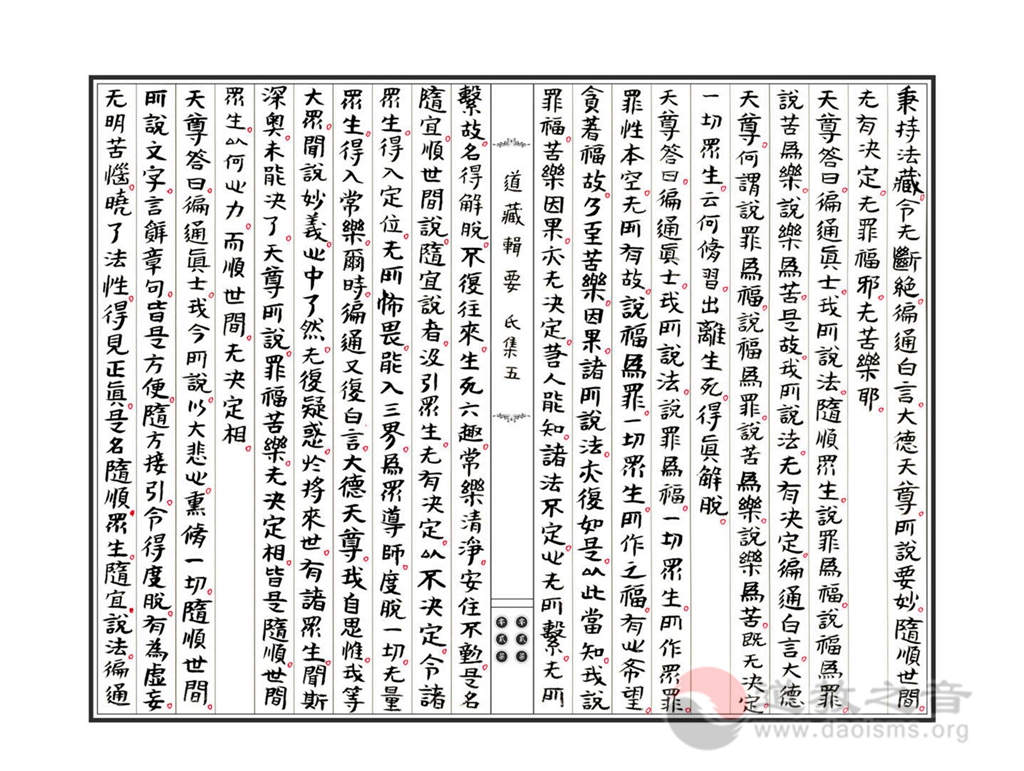 秉持法藏令无斷絶徧通白言大德天尊所說要妙隨順世間
无有決定无罪福邪无苦樂耶
天尊答曰徧通眞士我所說法隨順眾生說罪爲福說福爲罪
說苦爲樂說樂爲苦是故我所說法无有決定徧通白言大德
天尊何謂說罪爲福說福爲罪說苦爲樂說樂爲苦旣无決定
一切眾生云何脩習出離生死得眞解脫
天尊答曰徧通眞士我所說法說罪爲福一切眾生所作眾罪
罪性本空无所有故說福爲罪一切眾生所作之福有心希望
貪著福故乃至苦樂因果諸所說法亦復如是以此當知我說
罪福苦樂因果亦无決定若人能知諸法不定心无所繫无所
道藏輯要 氐集五
繫故名得解脫不復往來生死六趣常樂清淨安住不動是名
隨宜順世間說隨宜說者汲引眾生无有決定以不決定令諸
眾生得入定位无所怖畏能入三界爲眾導師度脫一切无量
眾生得入常樂爾時徧通又復白言大德天尊我自思惟我等
大眾聞說妙義心中了然无復疑惑於將來世有諸眾生聞斯
深奧未能決了天尊所說罪福苦樂无決定相皆是隨順世間
眾生以何心力而順世間无決定相
天尊答曰徧通眞士我今所說以大悲心熏脩一切隨順世間
所說文字言辭章句皆是方便隨方接引令得度脫有為虛妄
无明苦惱曉了法性得見正眞是名隨順眾生隨宜說法徧通
道教之音
www.daoisms.org